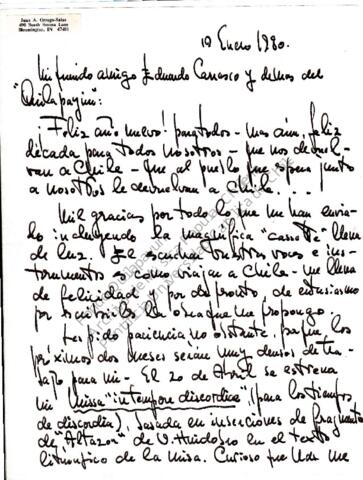 Juan A. Orrego-Salas
490 South Serena Lane
Bloomington, IN 47401
10 Enero 1980.
Mi querido amigo Eduardo Carrasco y demás del
"Quilapayún":
¡Feliz año nuevo! para todos - mas aún, feliz
década para todos nosotros - que nos devuel-
van a Chile - que al pueblo que espera junto
a nosotros le devuelvan a Chile...
Mil gracias por todo lo que me han envia-
do incluyendo la magnífica "cassette" llena
de luz. El escuchar vuestras voces e ins-
trumentos es como viajar a Chile - me llena
de felicidad y por de pronto, de entusiasmo
por escribirles la obra que me propongo.
Les pido paciencia no obstante, porque los
próximos dos meses serán muy densos de tra-
bajo para mi - El 20 de Abril se estrena
mi Missa "in tempore discordiae", (para los tiempos
de discordia), basada en inserciones de fragmentos
de "Altazor" de V. Huidobro en el texto
litúrgico de la misa. Curioso que Uds. me